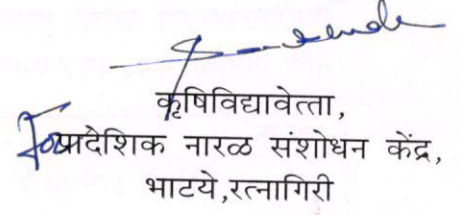 कृषिविद्यावेत्ता,
For प्रादेशिक नारळ संशोधन केंद्र,
भाटये,रत्नागिरी